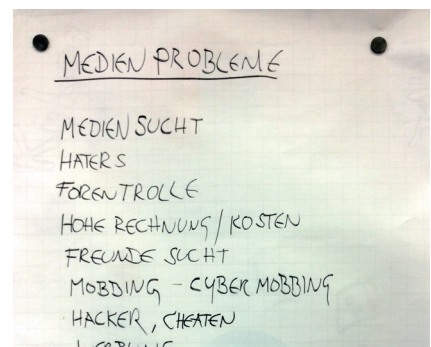 MEDIEN PROBLEME
MEDIENSUCHT
HATERS
FORENTROLLE
HOHE RECHNUNG/KOSTEN
FREUNDE SUCHT
MOBBING - CYBERMOBBING
HACKER, CHEATEN